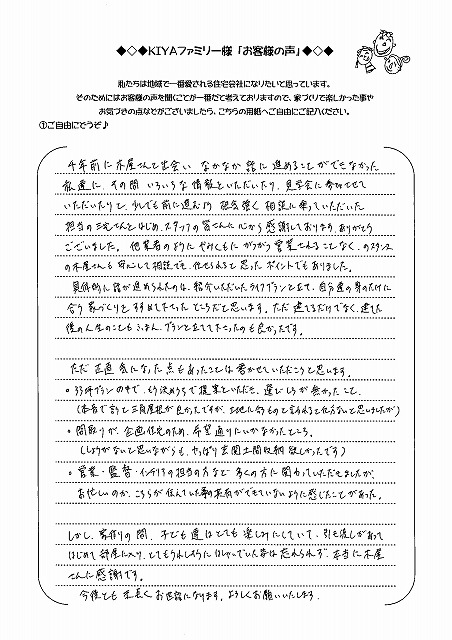 ◆◇◆KIYAファミリー様「お客様の声」◆◇◆
私たちは地域で一番愛される住宅会社になりたいと思っています。
そのためにはお客様の声を聞くことが一番だと考えておりますので、家づくりで楽しかった事や
お気づきの点などがございましたら、こちらの用紙へご自由にご記入ください。
①ご自由にどうぞ♪
4年前に木屋さんと出会い なかなか話に進めることができなかった
私達に、その間 いろいろな情報をいただいたり、見学会に参加させて
いただいたりと、少しでも前に進む様 根気強く 相談に乗っていただいた
担当の三宅さんをはじめ、スタッフの皆さんに心から感謝しております。ありがとう
ございました。他業者のように やみくもに がつがつ営業されることなく、のスタンス
の木屋さんも 安心して相談でき、任せられると思ったポイントでもありました。
具体的に話が進められたのは、紹介いただいたライフプランを立て、自分達の身のたけに
合う家づくりをすすめて下さったところだと思います。ただ 建てるだけでなく、建てた
後の人生のことも ふまえ、プランを立てて下さったのも良かったです。
ただ 正直 気になった点もあったことは書かせていただこうと思います。
○33坪プランの中で、もう決めうちで提案をいただき、選びしろが無かったこと、
(本音で言うと三角屋根が良かったですが、土地に合うものと言われると仕方ないと思いましたが)
○間取りが、企画住宅のため、希望通りにいかなかったところ。
(しょうがないと思いながらも、やっぱり玄関土間収納欲しかったです)
○営業・監督・インテリアの担当の方など 多くの方に関わっていただきましたが、
お忙しいのか、こちらが伝えていた事の共有ができていないように感じたことがあった。
しかし、家作りの間、子ども達はとても楽しみにしていて、引き渡しがあって
はじめて部屋に入り、とてもうれしそうに はしゃいでいた姿は忘れられず、本当に木屋
さんに感謝です。
今後とも 末長くお世話になります。よろしくお願いいたします。